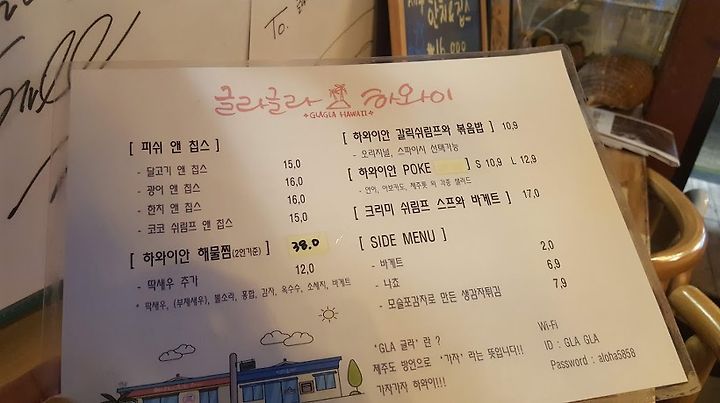 To.
₩16,000
글라글라 하와이
GLAGLA HAWAII
[ 피쉬 앤 칩스 ]
- 달고기 앤 칩스 15,0
- 광어 앤 칩스 16,0
- 한치 앤 칩스 16,0
- 코코 쉬림프 앤 칩스 15,0
[ 하와이안 해물찜(2인기준) ] 38.0
- 딱새우 추가 12,0
* 딱새우, (부채새우), 뿔소라, 홍합, 감자, 옥수수, 소세지, 바게트
[ 하와이안 갈릭쉬림프와 볶음밥 ] 10,9
- 오리지널, 스파이시 선택가능
[ 하와이안 POKE ] S 10,9 L 12,9
- 연어, 아보카도, 제주톳 외 각종 샐러드
[ 크라미 쉬림프 스프와 바게트 ] 17,0
[ SIDE MENU ]
- 바게트 2,0
- 나쵸 6,9
- 모슬포감자로 만든 생감자튀김 7,9
'GLA 글라' 란 ?
제주도 방언으로 '가자' 라는 뜻입니다!!
가자가자 하와이!!!
Wi-Fi
ID : GLA GLA
Password : aloha5858